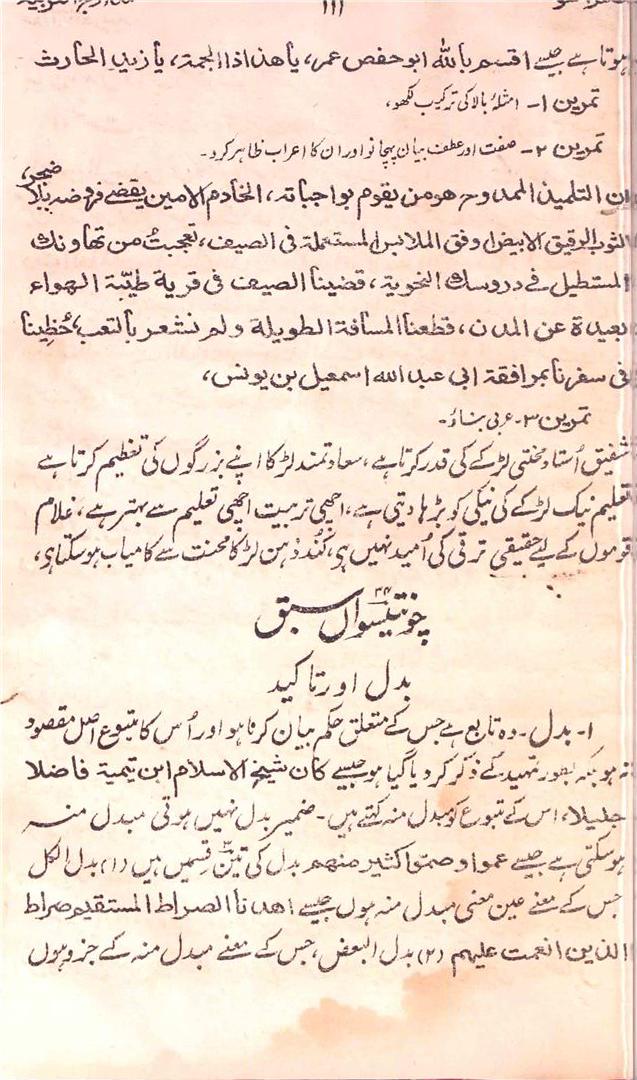 ۱۱۱
ہوتا ہے جیسے اقسم باللہ ابو حفص عمر، یا ھذا ذا الجمۃ، یا زید الحارث
تمرین ۱- امثلۂ بالا کی ترکیب لکھو،
تمرین ۲- صفت اور عطف بیان پہچانو اور ان کا اعراب ظاہر کرو۔
ان التلمیذ الممدوح ھو من یقوم بواجباتہ، الخادم الامین یقضے فروضہ بلا ضجر،
الثوب الرقیق الابیض اوفق الملابس المستعملۃ فی الصیف، تعجبت من تھاونک
المستطیل فے دروسک النحویۃ، قضینا الصیف فی قریۃ طیّبۃ الھواء
بعیدۃ عن المدن، قطعنا المسافۃ الطویلۃ ولم نشعر بالتعب، حُظِینا
فی سفرنا بمرافقۃ ابی عبد اللہ اسمعیل بن یونس،
تمرین ۳- عربی بناؤ۔
شفیق اُستاد محنتی لڑکے کی قدر کرتا ہے، سعادتمند لڑکا اپنے بزرگوں کی تعظیم کرتا ہے
تعلیم نیک لڑکے کی نیکی کو بڑہا دیتی ہے، اچھی تربیت اچھی تعلیم سے بہتر ہے، غلام
قوموں کے لیے حقیقی ترقی کی اُمید نہیں ہی، کُند ذہن لڑکا محنت سے کامیاب ہو سکتا ہی،
چونتیسواں سبق ۳۴
بدل اور تاکید
۱- بدل- وہ تابع ہے جس کے متعلق حکم بیان کرنا ہو اور اُس کا متبوع اصل مقصود
نہ ہو بلکہ بطور تمہید کے ذکر کر دیا گیا ہو جیسے کان شیخ الاسلام ابن تیمیۃ فاضلا
جلیلا، اس کے متبوع کو مبدل منہ کہتے ہیں- ضمیر بدل نہیں ہوتی مبدل منہ
ہو سکتی ہے جیسے عموا وصموا کثیر منھم بدل کی تین قِسمیں ہیں (۱) بدل الکل
جس کے معنے عین معنی مبدل منہ ہوں جیسے اھدنا الصراط المستقیم صراط
الذین انعمت علیھم (۲) بدل البعض، جس کے معنے مبدل منہ کے جزو ہوں